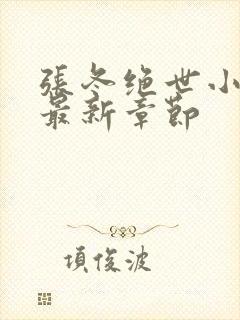 張冬绝世小
最新章節
項俊波